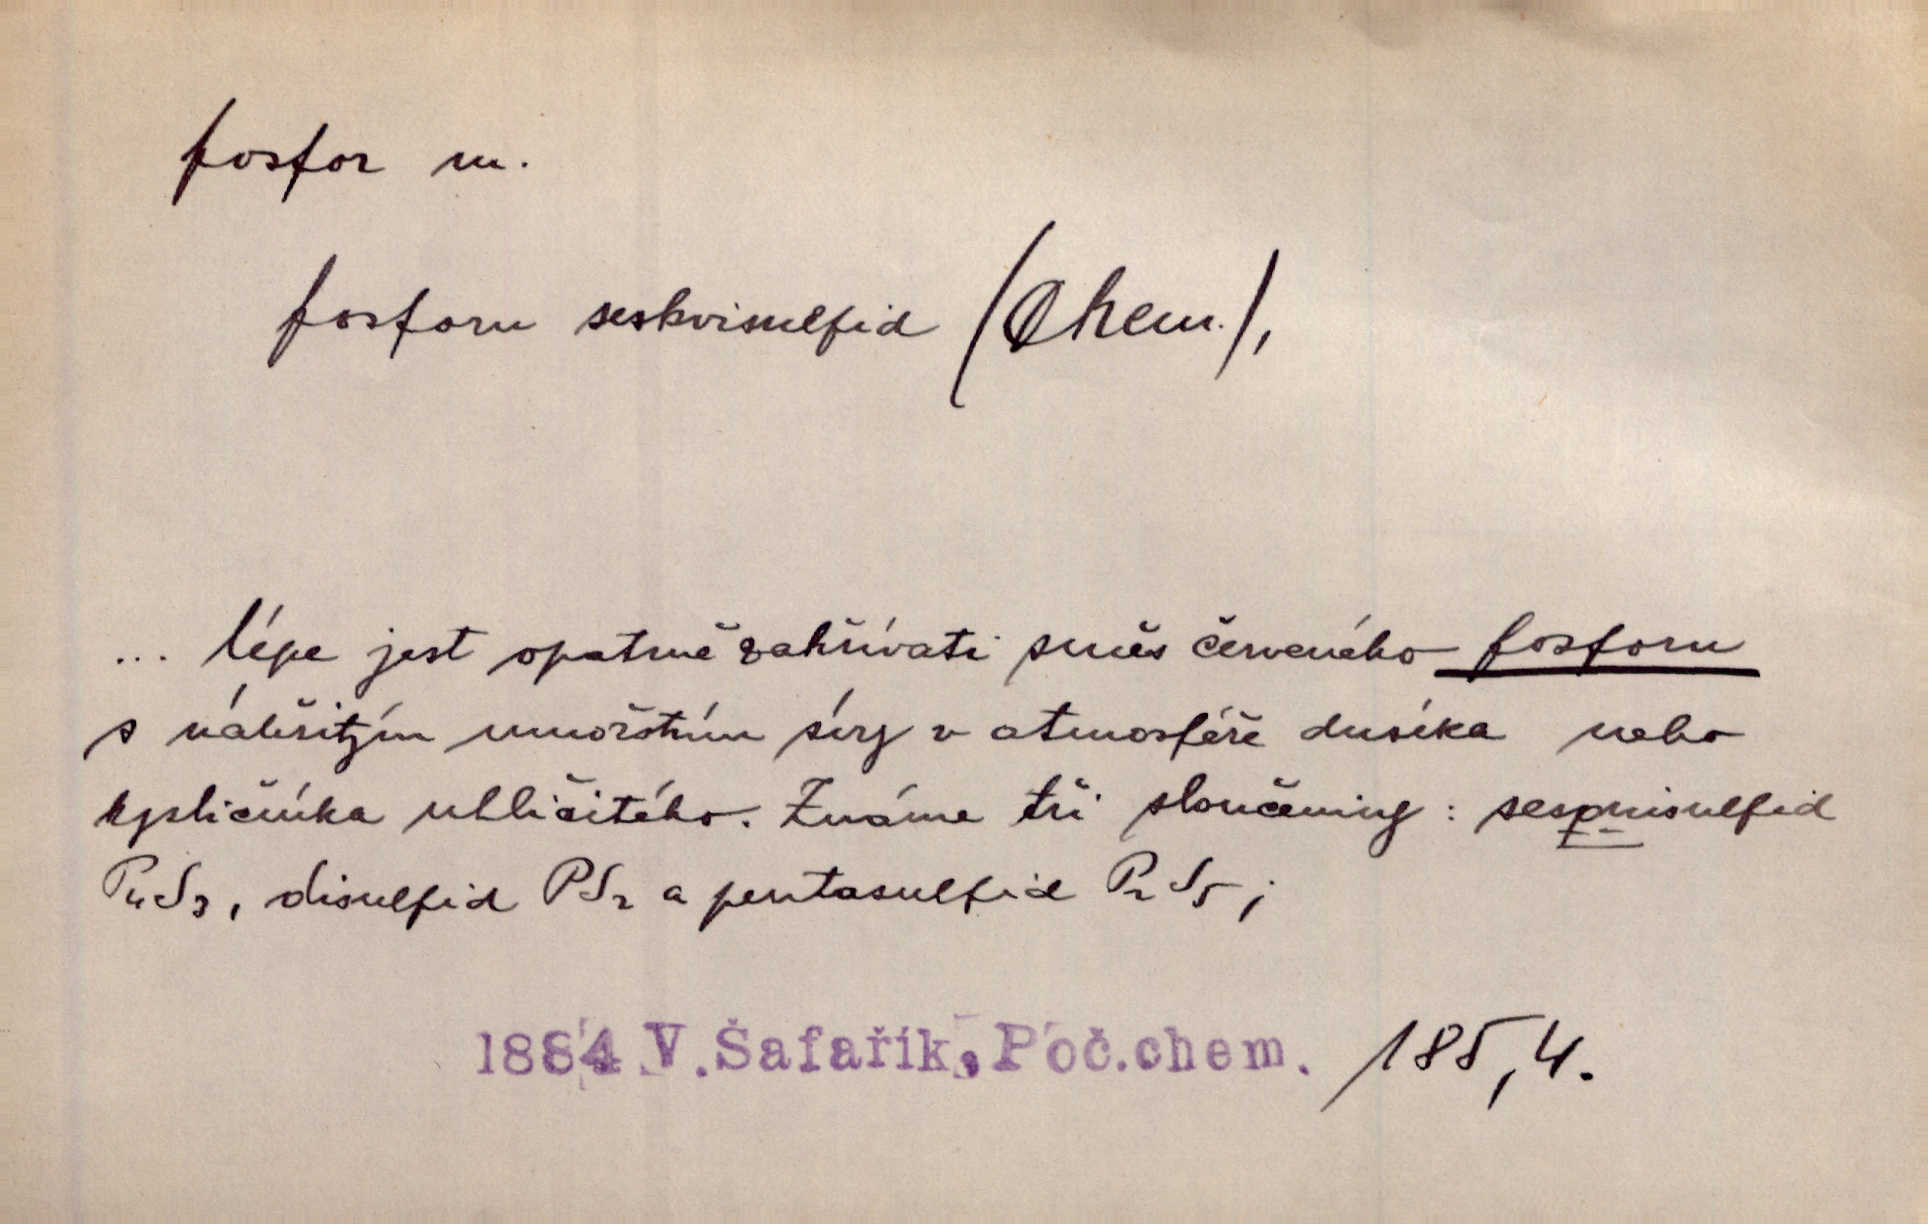 fosfor m.
fosforu seskvisulfid (Chem.),
... lépe jest opatrně zahřívati směs červeného fosforu
s náležitým množstvím síry v atmosféře dusíka nebo
kysličníka uhličitého. Známe tři sloučeniny: sesquisulfid
P₄S₃, disulfid PS₂ a pentasulfid P₂S₅;
1884 V. Šafařík, Poč.chem. 185,4.